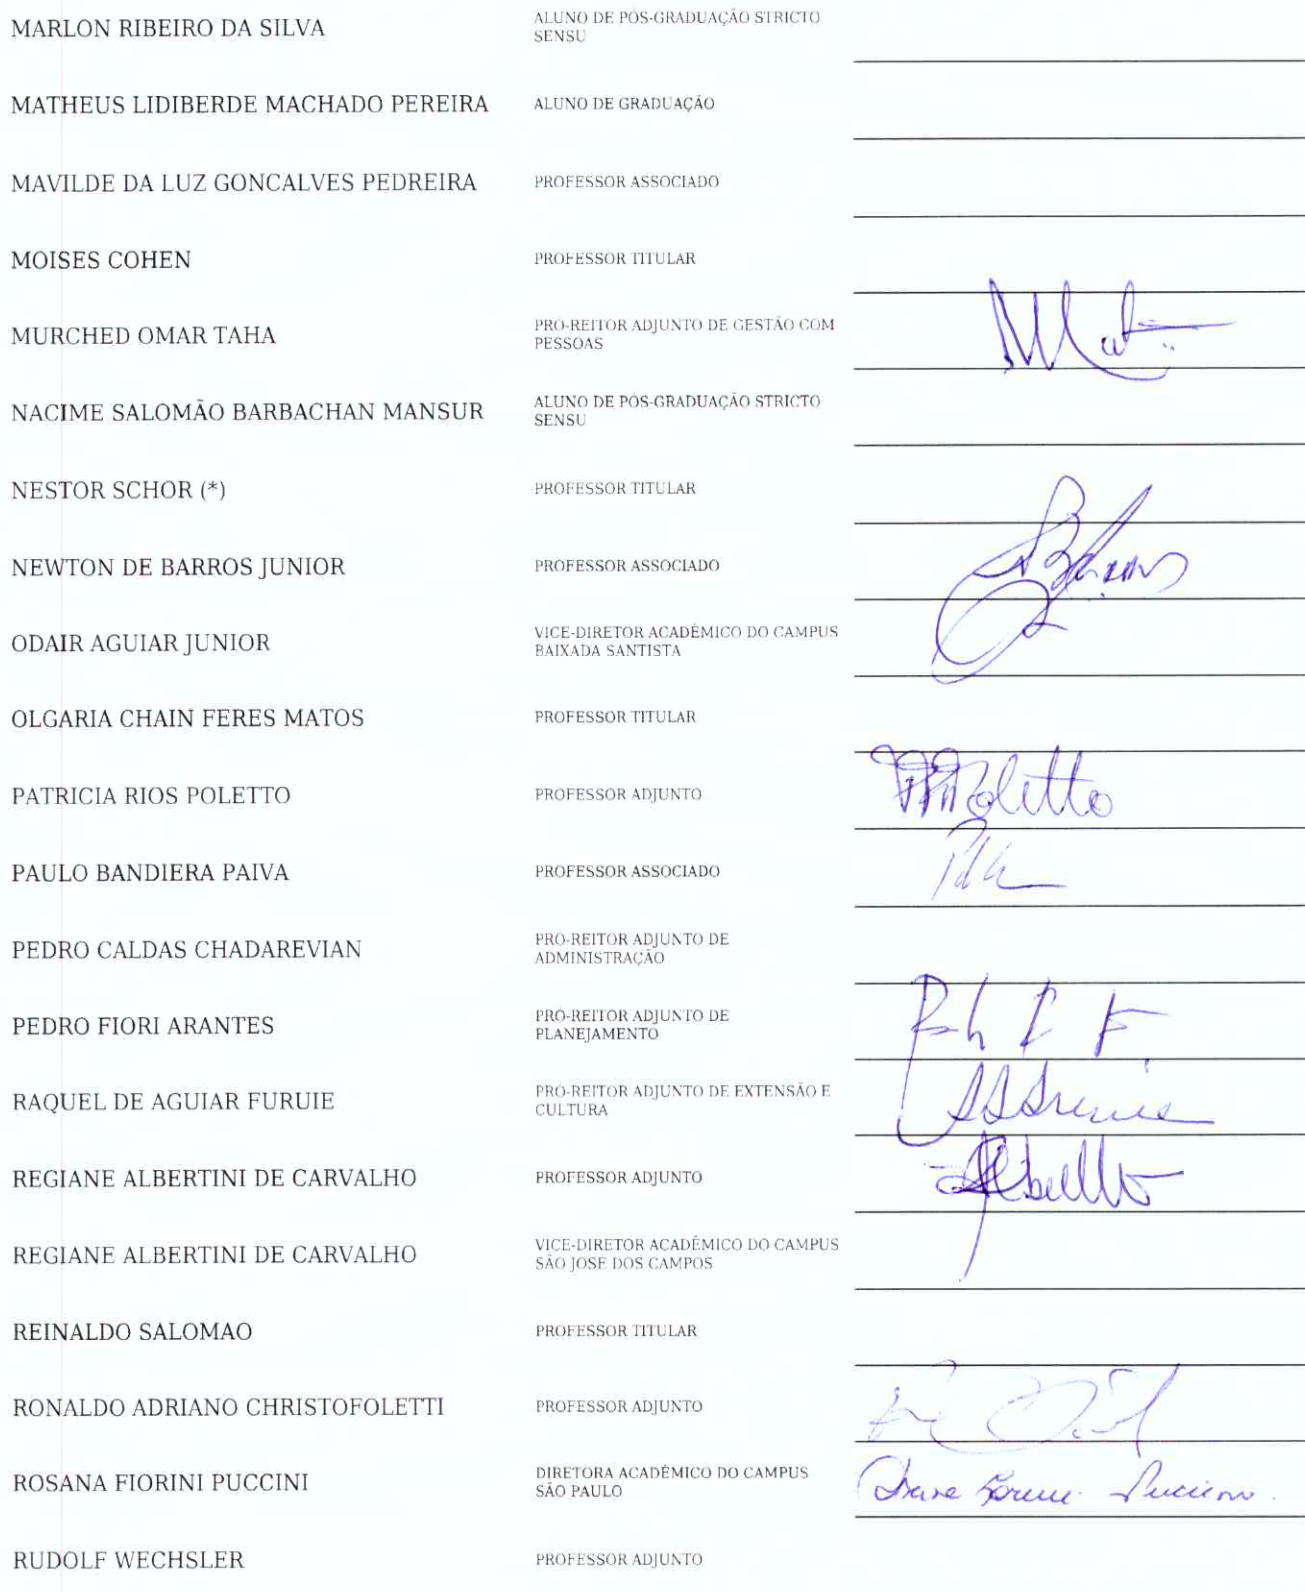 MARLON RIBEIRO DA SILVA ALUNO DE PÓS-GRADUAÇÃO STRICTO
SENSU
MATHEUS LIDIBERDE MACHADO PEREIRA ALUNO DE GRADUAÇÃO
MAVILDE DA LUZ GONCALVES PEDREIRA PROFESSOR ASSOCIADO
MOISES COHEN PROFESSOR TITULAR
MURCHED OMAR TAHA PRÓ-REITOR ADJUNTO DE GESTÃO COM
PESSOAS
NACIME SALOMÃO BARBACHAN MANSUR ALUNO DE PÓS-GRADUAÇÃO STRICTO
SENSU
NESTOR SCHOR (*) PROFESSOR TITULAR
NEWTON DE BARROS JUNIOR PROFESSOR ASSOCIADO
ODAIR AGUIAR JUNIOR VICE-DIRETOR ACADÊMICO DO CAMPUS
BAIXADA SANTISTA
OLGARIA CHAIN FERES MATOS PROFESSOR TITULAR
PATRICIA RIOS POLETTO PROFESSOR ADJUNTO
PAULO BANDIERA PAIVA PROFESSOR ASSOCIADO
PEDRO CALDAS CHADAREVIAN PRÓ-REITOR ADJUNTO DE
ADMINISTRAÇÃO
PEDRO FIORI ARANTES PRÓ-REITOR ADJUNTO DE
PLANEJAMENTO
RAQUEL DE AGUIAR FURUIE PRÓ-REITOR ADJUNTO DE EXTENSÃO E
CULTURA
REGIANE ALBERTINI DE CARVALHO PROFESSOR ADJUNTO
REGIANE ALBERTINI DE CARVALHO VICE-DIRETOR ACADÊMICO DO CAMPUS
SÃO JOSÉ DOS CAMPOS
REINALDO SALOMAO PROFESSOR TITULAR
RONALDO ADRIANO CHRISTOFOLETTI PROFESSOR ADJUNTO
ROSANA FIORINI PUCCINI DIRETORA ACADÊMICO DO CAMPUS
SÃO PAULO
RUDOLF WECHSLER PROFESSOR ADJUNTO